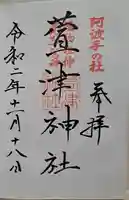 阿波手の杜
奉拝
萱津神社
令和二年十一月十八日